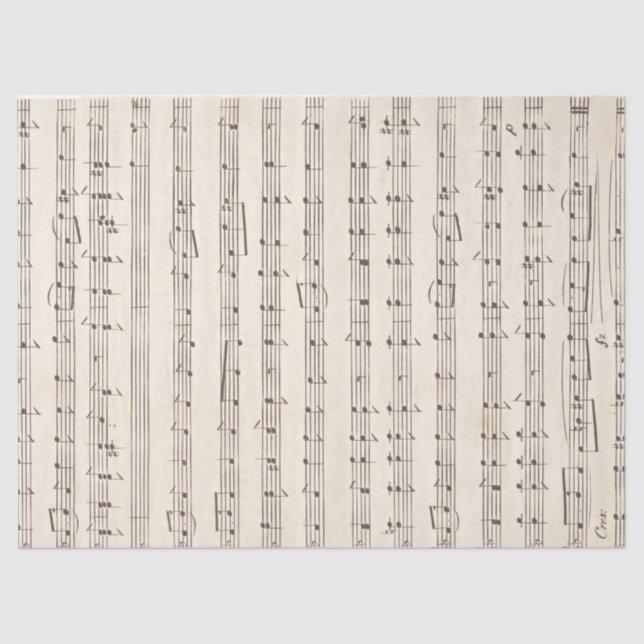 p
Cres:
fz